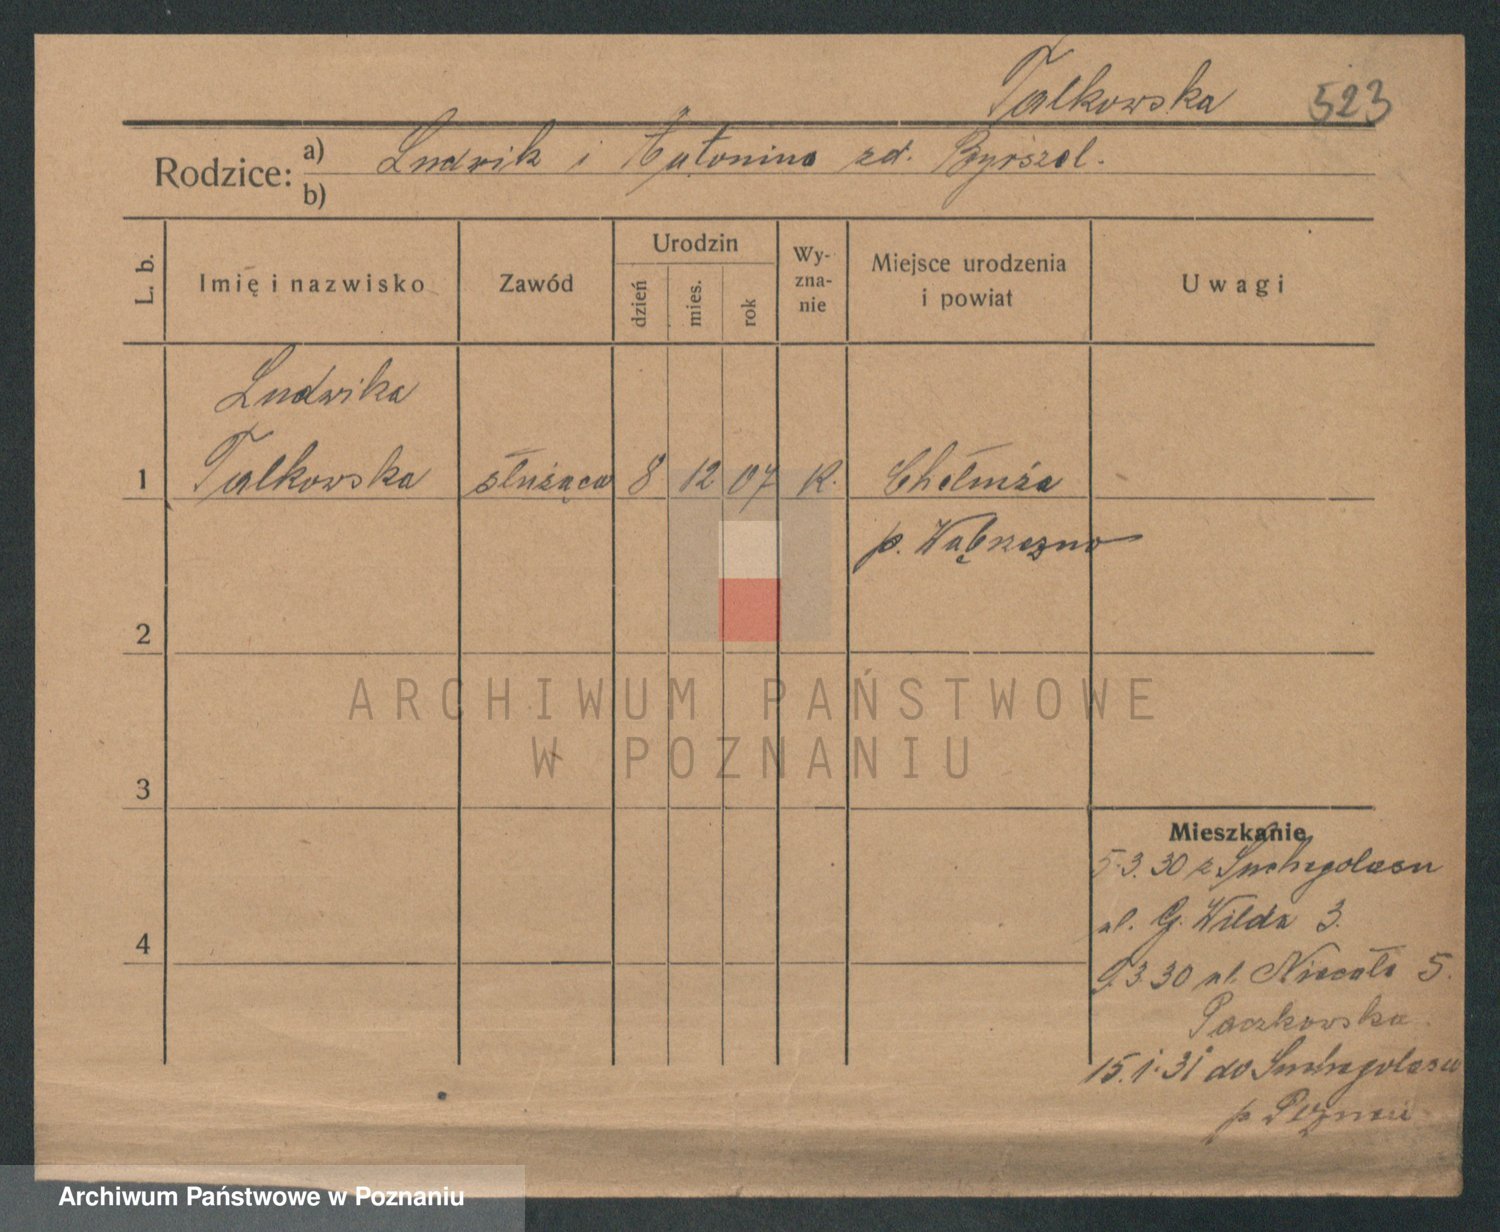 Talkowska 523
Rodzice: a) Ludwik i Antonina zd. Byrszel.
b)
L. b. Imię i nazwisko Zawód Urodzin dzień mies. rok Wy-zna-nie Miejsce urodzenia i powiat Uwagi
Ludwika
1 Talkowska służąca 8 12 07 R. Chełmża
p. Wąbrzezno
2
ARCHIWUM PAŃSTWOWE
W POZNANIU
3
Mieszkanie
5.3.30 z Suchegolasu
4 ul. G. Wilda 3.
9.3.30 ul. Niecała 5.
Paczkowska.
15.1.31 do Suchegolasu
p Poznań
Archiwum Państwowe w Poznaniu